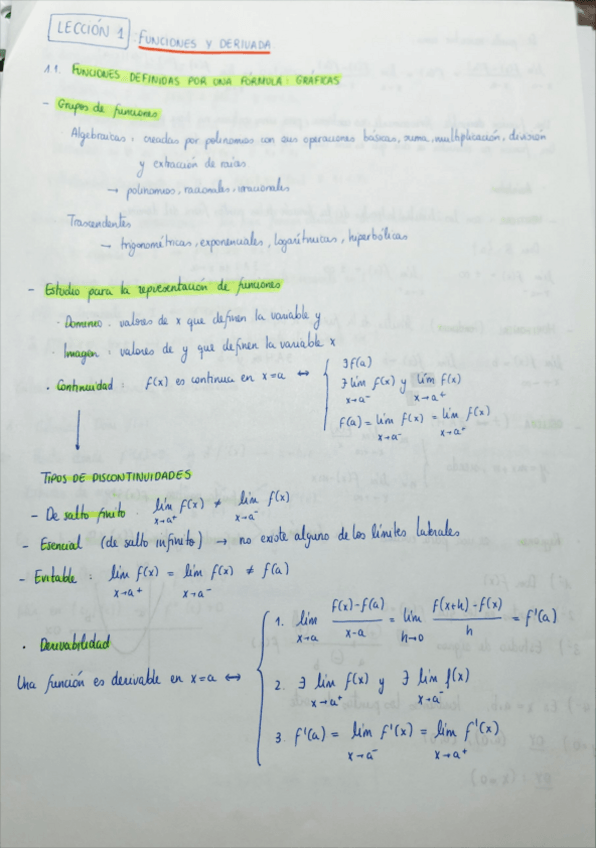 LECCIÓN 1 FUNCIONES Y DERIVADA
1.1. FUNCIONES DEFINIDAS POR UNA FÓRMULA: GRÁFICAS
- Grupos de funciones
Algebraicas: creadas por polinomios con sus operaciones básicas, suma, multiplicación, división
y extracción de raíces
→ polinomios, racionales, irracionales
Trascendentes
→ trigonométricas, exponenciales, logarítmicas, hiperbólicas
- Estudio para la representación de funciones
· Dominio: valores de x que definen la variable y
· Imagen: valores de y que definen la variable x
· Continuidad: f(x) es continua en x=a ↔ { ∃f(a)
∃ lim x→a⁻ f(x) y lim x→a⁺ f(x)
f(a) = lim x→a⁻ f(x) = lim x→a⁺ f(x)
TIPOS DE DISCONTINUIDADES
- De salto finito: lim x→a⁺ f(x) ≠ lim x→a⁻ f(x)
- Esencial (de salto infinito) → no existe alguno de los límites laterales
- Evitable: lim x→a⁺ f(x) = lim x→a⁻ f(x) ≠ f(a)
· Derivabilidad
Una función es derivable en x=a ↔ {
1. lim x→a (f(x)-f(a))/(x-a) = lim h→0 (f(x+h)-f(x))/h = f'(a)
2. ∃ lim x→a⁺ f(x) y ∃ lim x→a⁻ f(x)
3. f'(a) = lim x→a⁻ f'(x) = lim x→a⁺ f'(x)